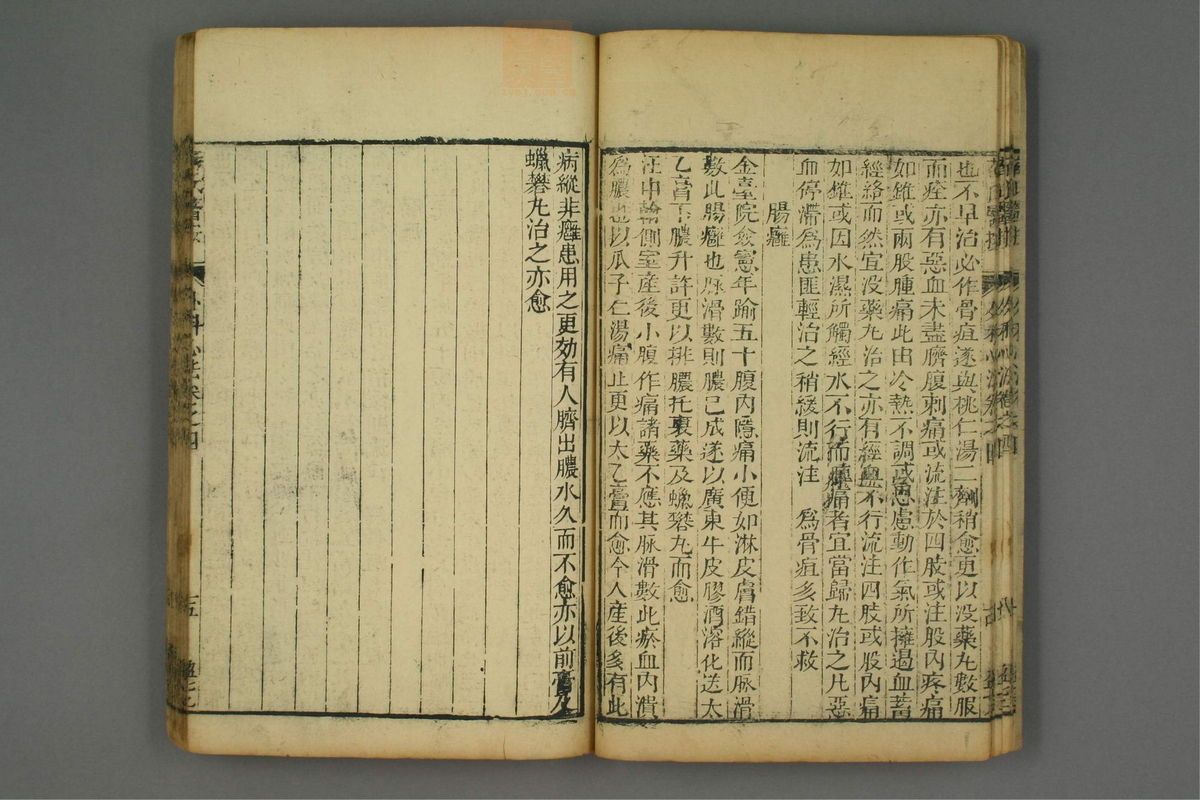 也不早治必作骨疽遂與桃仁湯二劑稍愈更以没藥丸數服
而痊亦有惡血未盡臍腹刺痛或流注於四肢或注股內疼痛
如錐或兩股腫痛此由冷熱不調或思慮動作氣所擁遏血蓄
經絡而然宜没藥丸治之亦有經血不行流注四肢或股內痛
如錐或因水濕所觸經水不行而腫痛者宜當歸丸治之凡惡
血停滯爲患匪輕治之稍緩則流注 爲骨疽多致不救
腸癰
金臺院僉憲年踰五十腹內隱痛小便如淋皮膚錯縱而脉滑
數此腸癰也脉滑數則膿已成遂以廣東牛皮膠酒溶化送太
乙膏下膿升許更以排膿托裏藥及蠟礬丸而愈
汪中翰側室産後小腹作痛諸藥不應其脉滑數此瘀血內潰
爲膿也以瓜子仁湯痛止更以太乙膏而愈今人産後多有此
病縱非癰患用之更効有人臍出膿水久而不愈亦以前膏及
蠟礬丸治之亦愈